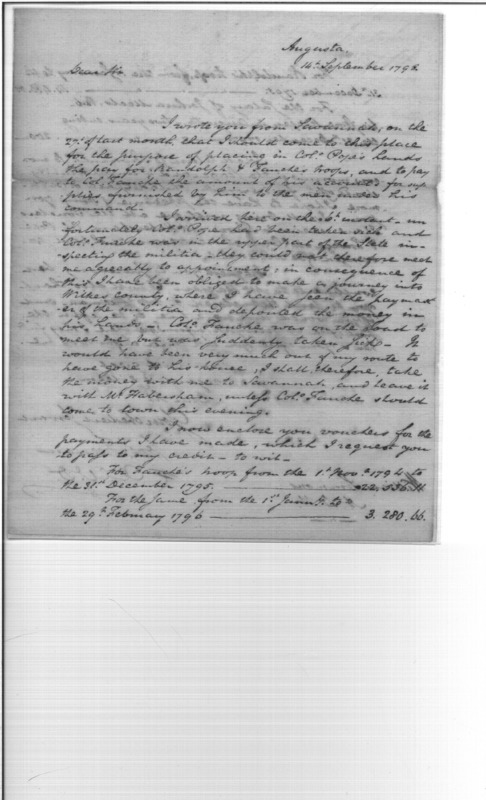 Augusta.
14th September 1796
Dear Sir
I wrote you from Savannah, on the
27th of last month, that I should come to this place
for the purpose of placing in Colo. Pope's hands
the pay for Randolph & Fauche's troops, and to pay
to Colo. Fauche the amount of his accounts for sup
plies furnished by him to the men under his
command.
I arrived here on the instant - un
fortunately Colo. Pope had been taken sick and
Colo. Fauche was in the upper part of the State in-
specting the militia - they could not therefore meet
me agreeably to appointment; in consequence of
this I have been obliged to make a journey into
Wilkes County, where I have seen the paymast
er of the militia and deposited the money in
his hands -. Colo. Fauche was on the road to
meet me, but was suddenly taken sick - It
would have been very much out of my route to
have gone to his house; I shall, therefore, take
the money with me to Savannah, and leave it
with Mr. Habersham, unless Colo. Fauche should
come to town this evening.
I now enclose you vouchers for the
payments I have made, which I request you
to pass to my credit - to wit -
For Fauche's troop from the 1st Novr. 1794 to
the 31st December 1795.
For the same, from the 1st Januy. to
the 29th February 1796 3.280.66.